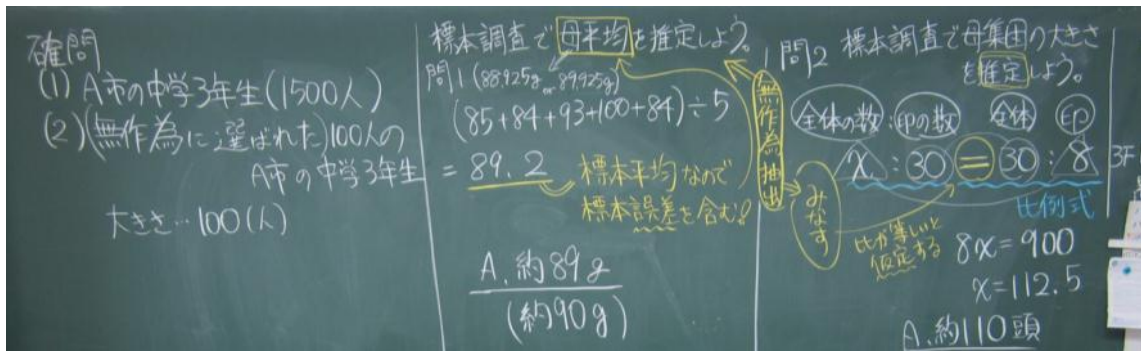 確問
(1) A市の中学3年生(1500人)
(2)(無作為に選ばれた)100人の
A市の中学3年生
大きさ…100(人)
標本調査で母平均を推定しよう。
問1(88.925g or 89.925g)
(85+84+93+100+84)÷5
= 89.2
標本平均なので
標本誤差を含む!
A. 約89g
(約90g)
無作為抽出
問2 標本調査で母集団の大きさ
を推定しよう。
全体の数:印の数 全体 印
x:30=30:8
比例式
みなす
比が等しいと
仮定する
8x=900
x=112.5
A. 約110頭